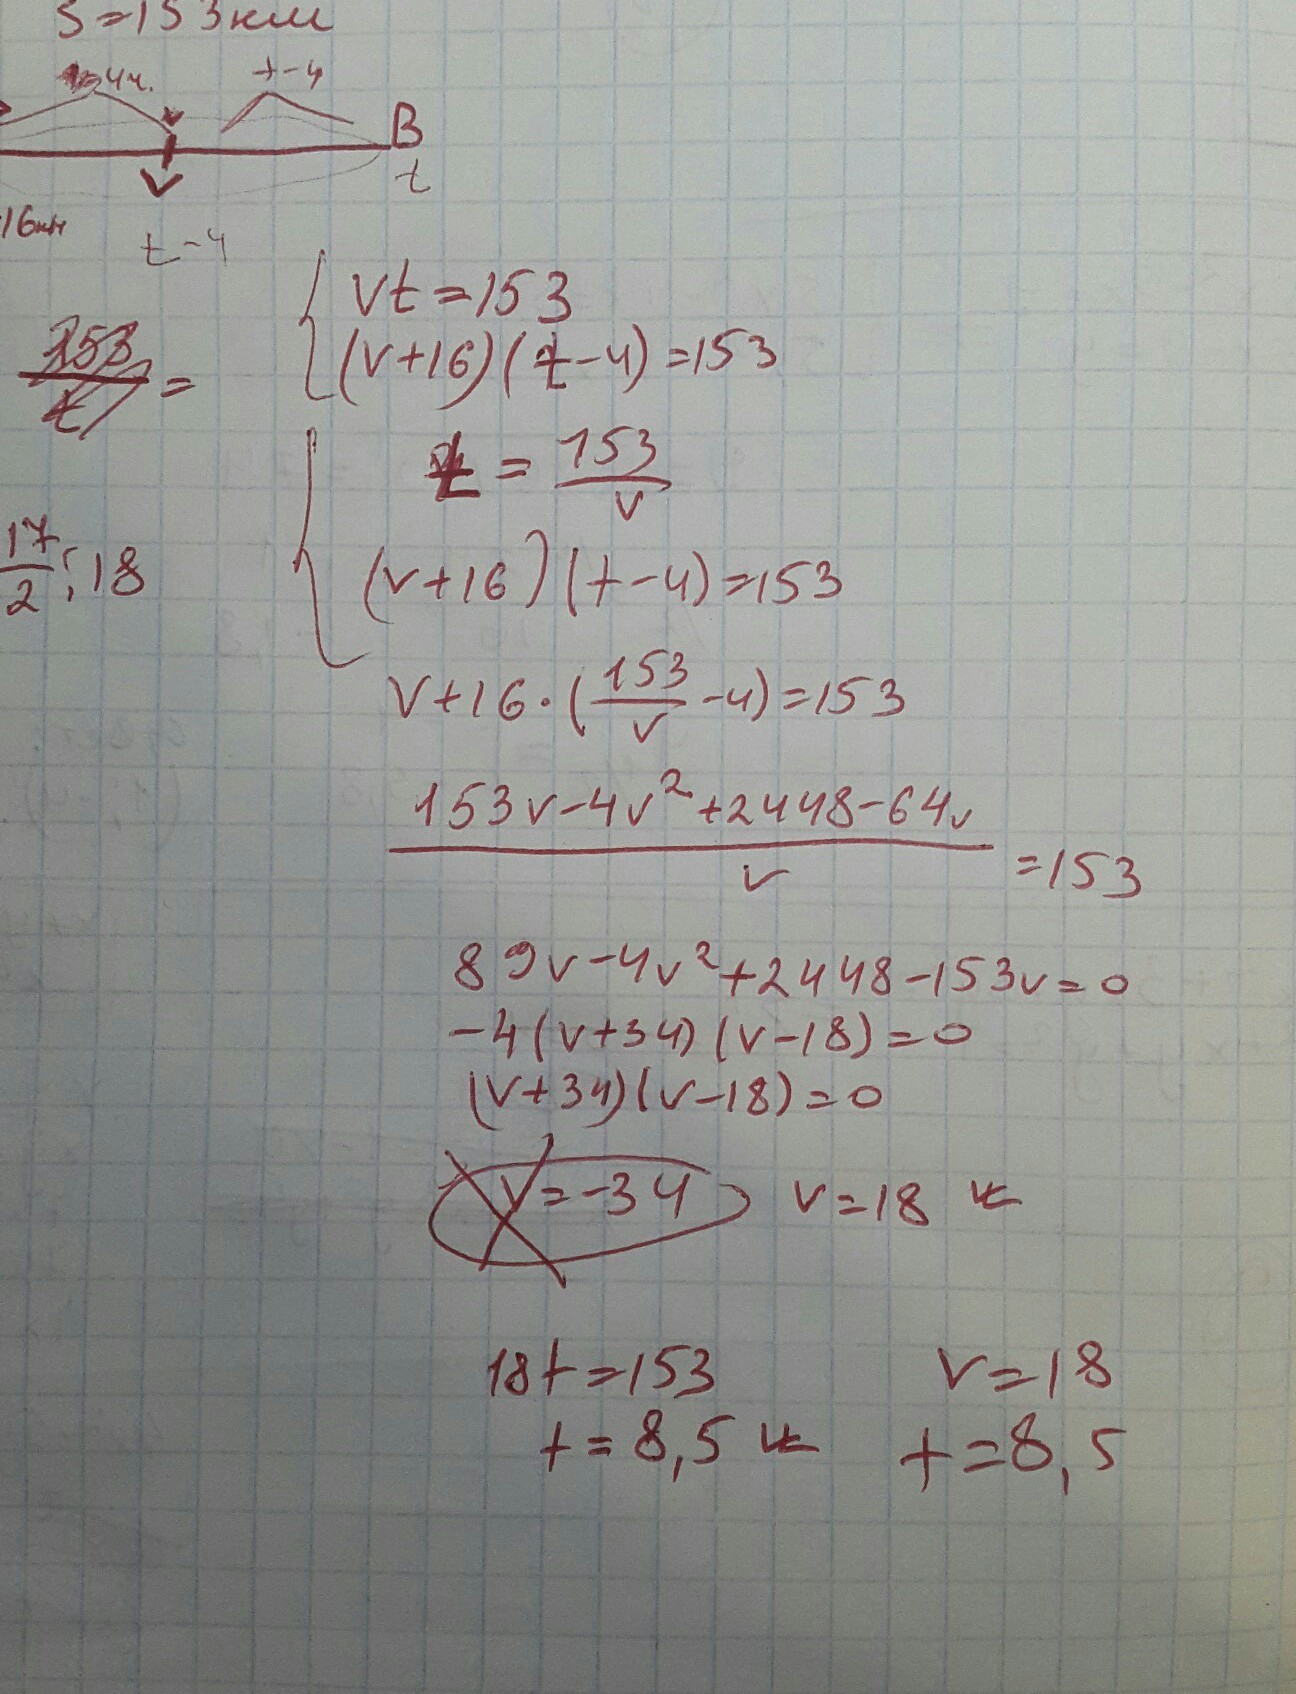 S=153км
4ч. t-4
B
t
16км/ч
t-4
vt=153
(v+16)(t-4)=153
153/t =
t = 153/v
17/2; 18
(v+16)(t-4)=153
v+16·(153/v -4)=153
(153v-4v²+2448-64v)/v =153
89v-4v²+2448-153v=0
-4(v+34)(v-18)=0
(v+34)(v-18)=0
v=-34 v=18
18t=153 v=18
t=8,5 t=8,5